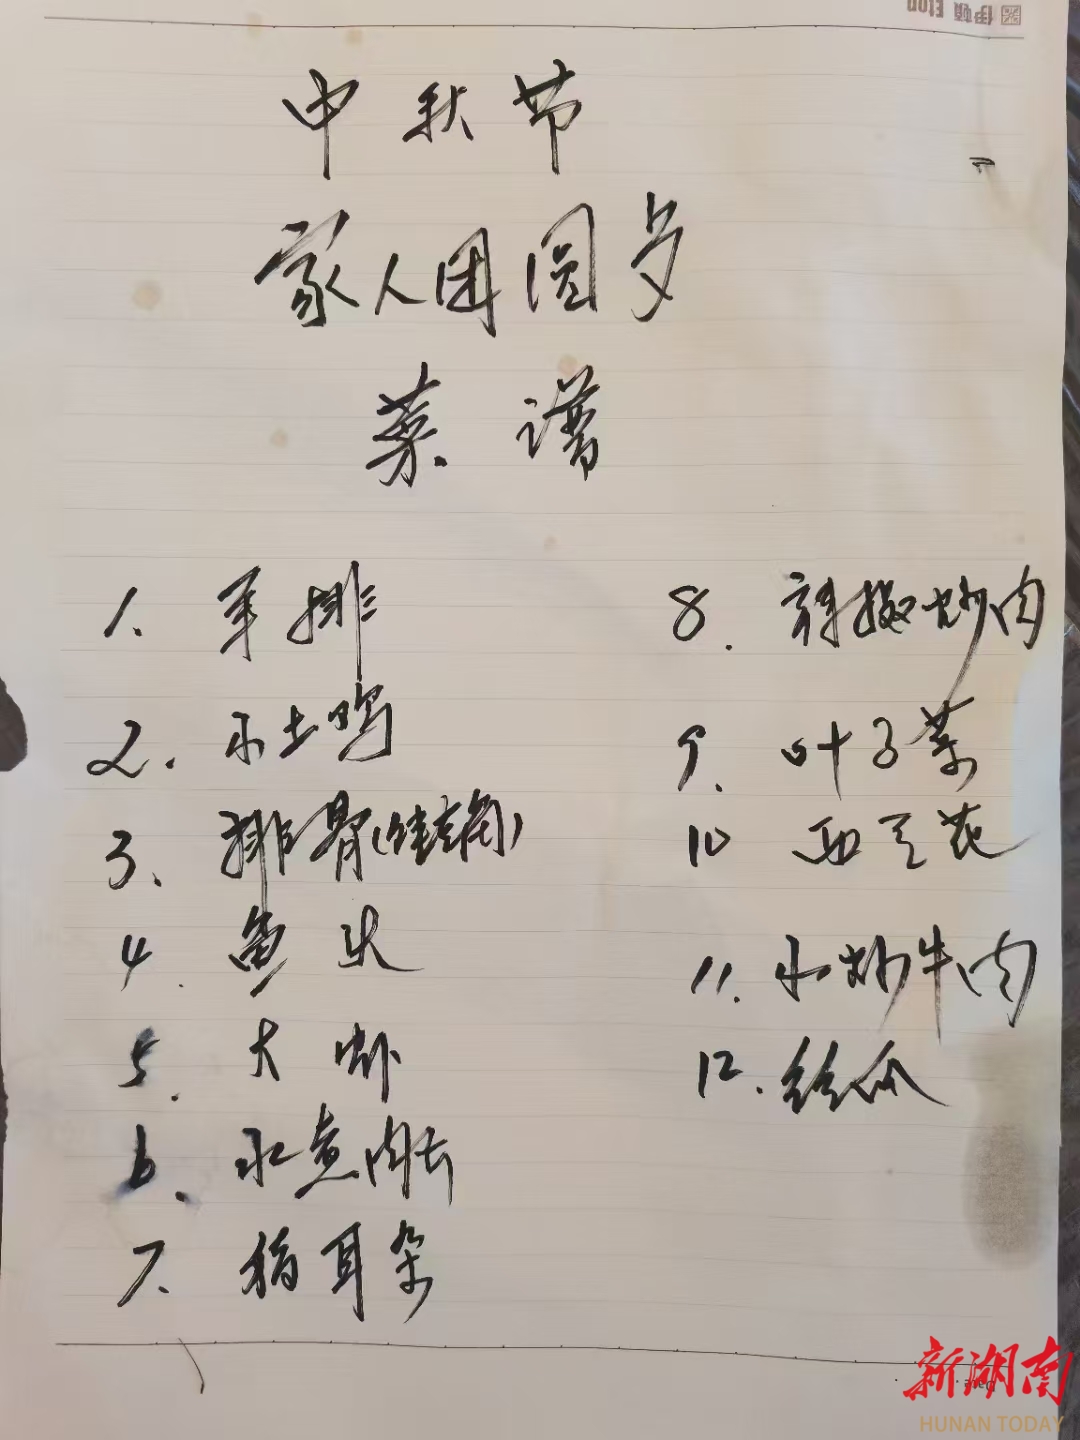 伊顿 Eton
中秋节
家人团圆夕
菜谱
1. 羊排
2. 小土鸡
3. 排骨
4. 鱼头
5. 大虾
6. 水煮肉片
7. 猪耳朵
8. 辣椒炒肉
9. 叶子菜
10 西兰花
11. 小炒牛肉
12. 丝瓜
新湖南
HUNAN TODAY